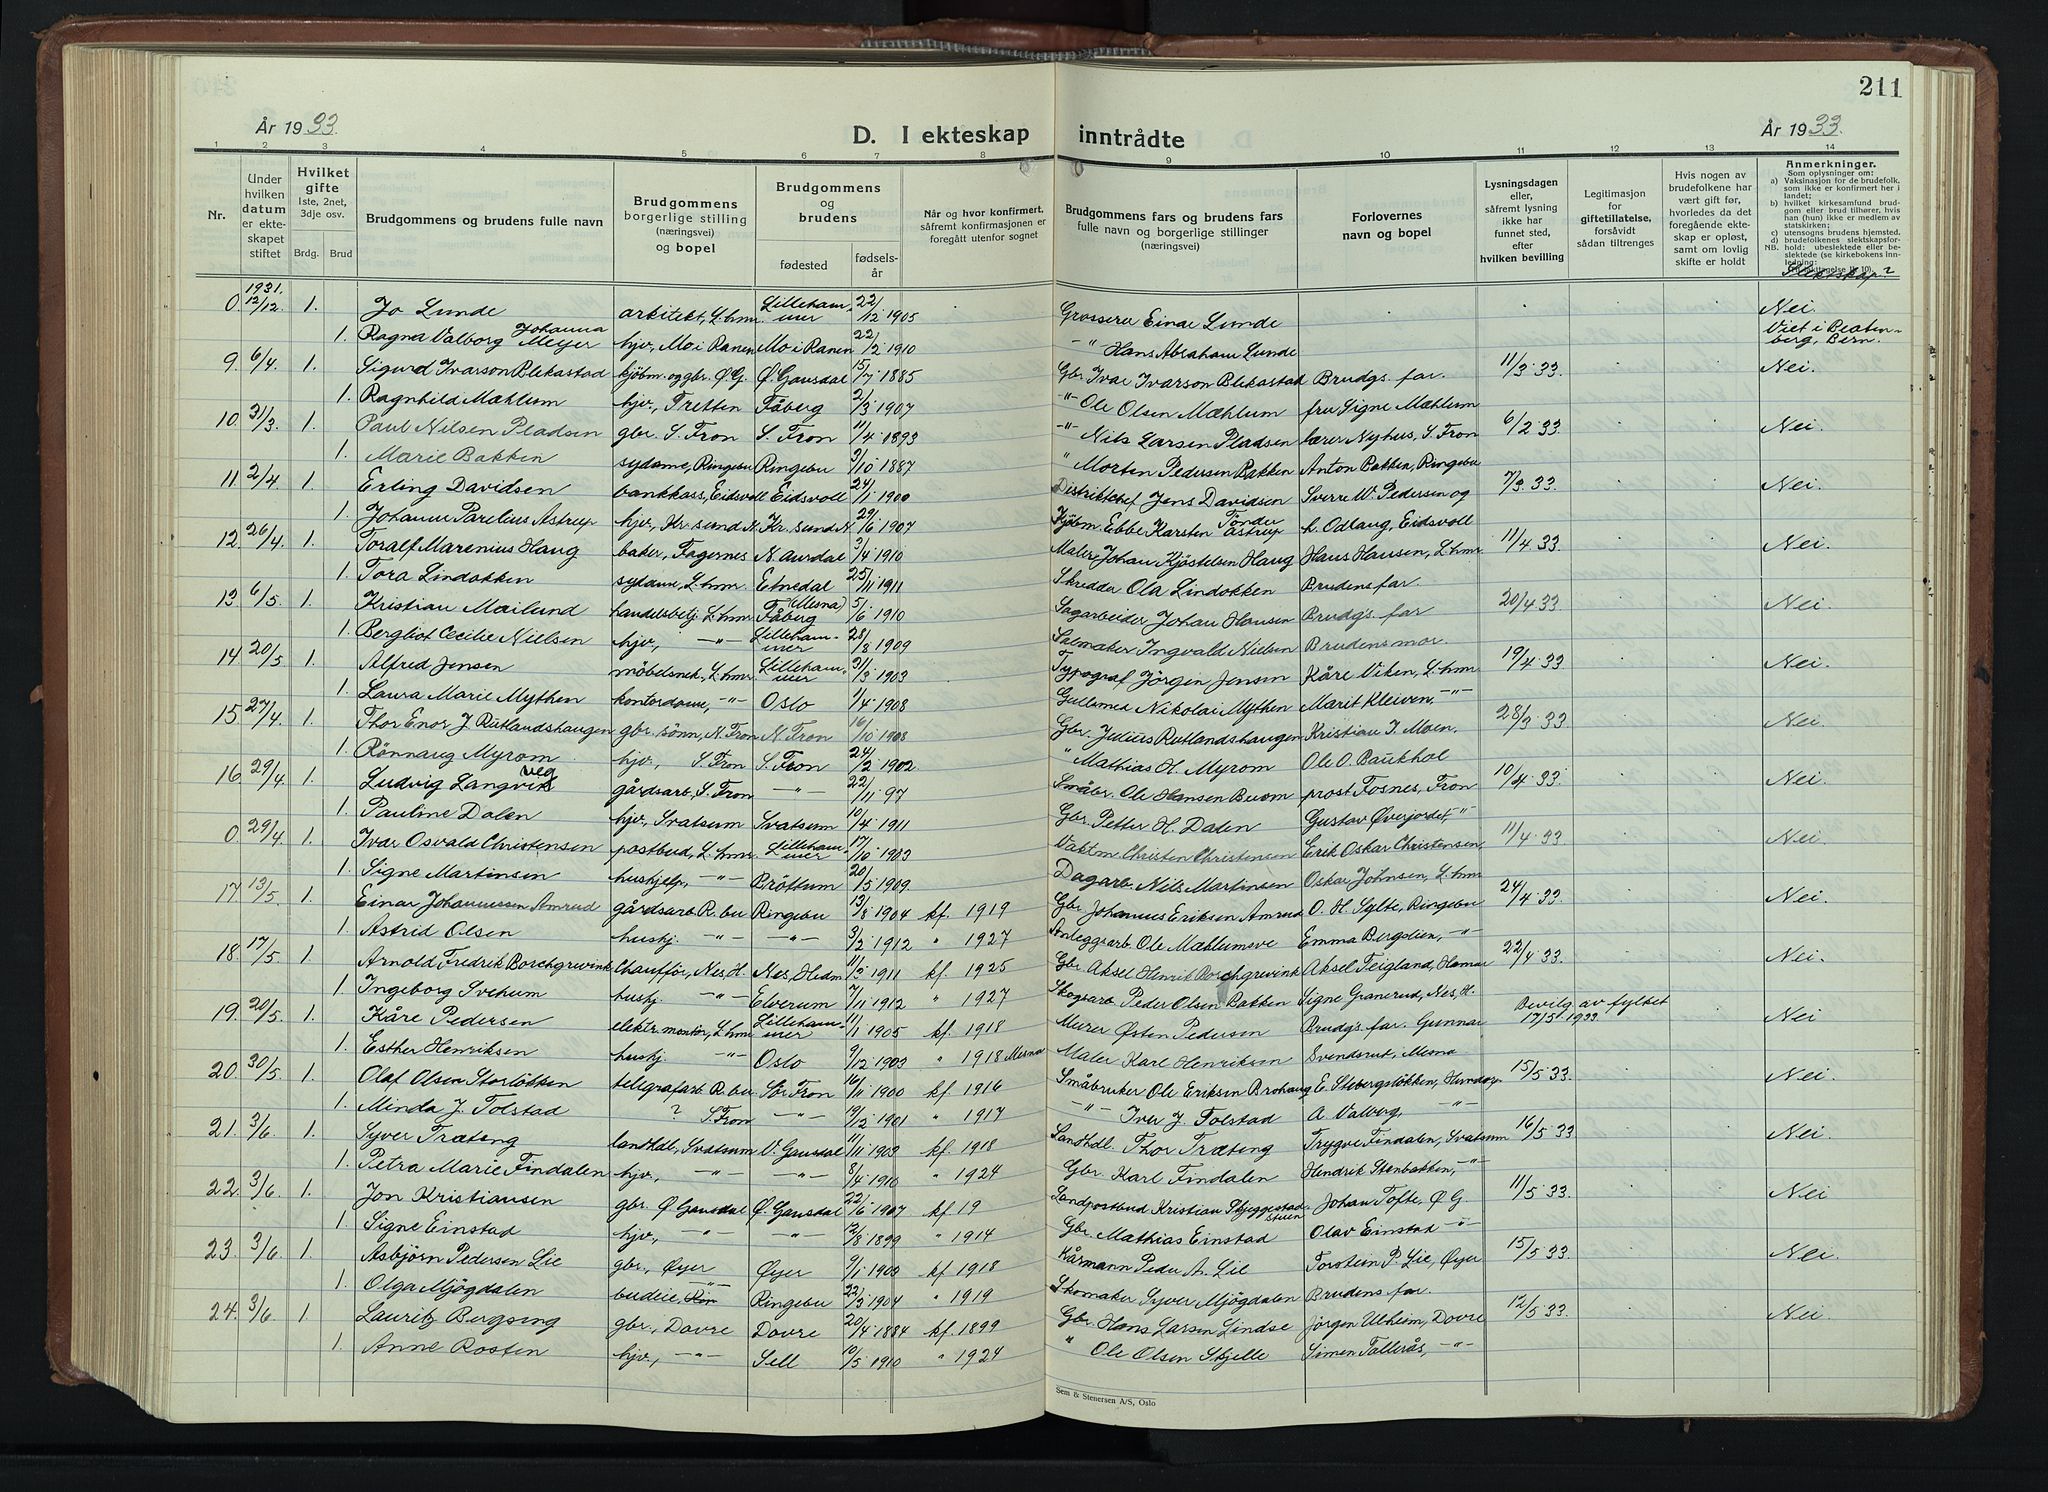 211
År 1933.
D. I ekteskap inntrådte
År 1933.
1 2 3 4 5 6 7 8 9 10 11 12 13 14
Nr.
Under hvilken datum er ekteskapet stiftet
Hvilket gifte 1ste, 2net, 3dje osv.
Brdg. Brud
Brudgommens og brudens fulle navn
Brudgommens borgerlige stilling (næringsvei) og bopel
Brudgommens og brudens
fødested
fødselsår
Når og hvor konfirmert, såfremt konfirmasjonen er foregått utenfor sognet
Brudgommens fars og brudens fars fulle navn og borgerlige stillinger (næringsvei)
Forlovernes navn og bopel
Lysningsdagen eller, såfremt lysning ikke har funnet sted, efter hvilken bevilling
Legitimasjon for giftetillatelse, forsåvidt sådan tiltrenges
Hvis nogen av brudefolkene har vært gift før, hvorledes da det foregående ekteskap er opløst, samt om lovlig skifte er holdt
Anmerkninger.
Som oplysninger om:
a) Vaksinasjon for de brudefolk, som ikke er konfirmert her i landet;
b) hvilket kirkesamfund brudgom eller brud tilhører, hvis han (hun) ikke er medlem av statskirken;
c) utensogns brudens hjemsted.
d) brudefolkenes slektskapsforhold: ubeslektede eller beslektede
Slektskap?
0 1931. 12/12. 1. Jo Lunde arkitekt, L.hmr. Lillehammer 22/12 1905 Grosserer Einar Lunde Nei.
1. Ragna Valborg Johanna Meyer hjv., Mo i Ranen Mo i Ranen 22/2 1910 -"- Hans Abraham Lunde Viet i Beatenberg, Bern.
9 6/4. 1. Sigurd Ivarson Blekastad kjøbm. og gbr. Ø.G. Ø. Gausdal 15/7 1885 Gbr. Ivar Ivarson Blekastad Brudgs. far. 11/3 33. Nei.
1. Ragnhild Mæhlum hjv., Tretten Fåberg 2/3 1907 -"- Ole Olsen Mæhlum fru Signe Mæhlum
10. 31/3. 1. Paul Nilsen Pladsen gbr. S. Fron S. Fron 11/4 1893 -"- Nils Larsen Pladsen lærer Nyhus, S. Fron 6/2 33. Nei.
1. Marie Bakken sydame, Ringebu Ringebu 3/10 1887 " Morten Pedersen Bakken Anton Bakken, Ringebu
11. 2/4. 1. Erling Davidsen bankkass., Eidsvoll Eidsvoll 24/1 1900 Distriktchef Jens Davidsen Sverre W. Pedersen og 7/3 33. Nei.
1. Johanne Parelius Astrup hjv., Kr. sund N. Kr. sund N. 29/6 1907 Kjøbm. Ebbe Karsten Tønder Astrup h. Odlaug, Eidsvoll
12. 26/4. 1. Toralf Marenius Haug baker, Fagernes N. Aurdal 3/4 1910 Maler Johan Kjøstelsen Haug Hans Hansen, L.hmr. 11/4 33. Nei.
1. Tora Lindokken sydame, L.hmr. Etnedal 25/11 1911 Skredder Ola Lindokken Brudens far
13 6/5. 1. Kristian Mailund handelsbetj. L.hmr. (Mesna) Fåberg 5/6 1910 Sagarbeider Johan Hansen Brudgs. far 20/4 33. Nei.
1. Bergliot Cecilie Nielsen hjv., -"- Lillehammer 28/8 1909 Salmaker Ingvald Nielsen Brudens mor.
14 20/5 1. Alfred Jensen møbelsnek., L.hmr. Lillehammer 31/3 1903 Typograf Jørgen Jensen Kåre Viken, L.hmr. 19/4 33. Nei.
1. Laura Marie Mythen kontordame, -"- Oslo 1/4 1908 Gullsmed Nikolai Mythen Marit Kleiven, -"-
15 27/4. 1. Thor Enor J. Rutlandshaugen gbr. sønn, N. Fron N. Fron 16/10 1908 Gbr. Julius Rutlandshaugen Kristian J. Moen, 28/3 33. Nei.
1. Rønnaug Myrom hjv., S. Fron S. Fron 24/2 1902. " Mathias H. Myrom Ole O. Baukhol
16 29/4. 1. Ludvig Langvik veg gårdsarb., S. Fron -"- 22/11 97 Småbr. Ole Hansen Buom prost Fosnes, Fron 10/4 33. Nei.
1. Pauline Dalen hjv., Svatsum Svatsum 10/4 1911 Gbr. Petter H. Dalen Gustav Øverjordet, -"-
0. 29/4. 1. Ivar Osvald Christensen postbud, L.hmr. Lillehammer 17/10 1903 Vaktm. Christen Christensen Erik Oskar Christensen, 11/4 33. Nei.
1. Signe Martinsen hushjelp, -"- Brøttum 20/5 1909. Dagarb. Nils Martinsen Oskar Johnsen, L.hmr.
17 13/5 1. Einar Johannessen Amrud gårdsarb R.bu Ringebu 13/8 1904 kf. 1919 Gbr. Johannes Eriksen Amrud O. H. Sylte, Ringebu 24/4 33. Nei.
1. Astrid Olsen hushj. -"- -"- 3/2 1912 " 1927 Anleggsarb. Ole Mæhlumsve Emma Bergslien, -"-
18. 17/5 1. Arnold Fredrik Borchgrevink Chauffør, Nes, H. Nes, Hedm. 11/3 1911 kf. 1925 Gbr. Aksel Henrik Borchgrevink Aksel Teigland, Hamar 22/4 33. Nei.
1. Ingeborg Svehum hushj. -"- Elverum 7/11 1912 " 1927 Skogsarb. Peder Olsen Bakken Signe Granerud, Nes, H.
19. 20/5. 1. Kåre Pedersen elektr. montør, L.hmr Lillehammer 11/1 1905 kf. 1918 Murer Østen Pedersen Brudgs. far. Gunnar Bevilg. av fylket 17/5 1933. Nei
1. Esther Henriksen hushj. -"- Oslo 9/12 1903 " 1918 Mesna Maler Karl Henriksen Svendsrud, Mesna
20. 30/5. 1. Olaf Olsen Storløkken telegrafarb. R.bu Sør Fron 16/11 1900 kf. 1916 Småbruker Ole Eriksen Brohaug E. Stebergsløkken, Hundorp 15/5 33. Nei.
1. Minda J. Tolstad ? S. Fron -"- 19/12 1901 " 1917 -"- Iver J. Tolstad A. Valbog, -"-
21. 3/6. 1. Syver Træteng landhdl., Svatsum V. Gausdal 11/11 1903 kf. 1918 Landhdl. Thor Træteng Trygve Findalen, Svatsum 16/5 33 Nei.
1. Petra Marie Findalen hjv., -"- -"- 8/4 1910 " 1924 Gbr. Karl Findalen Hendrik Stenbakken, -"-
22. 3/6. 1. Jon Kristiansen gbr. Ø. Gausdal Ø. Gausdal 22/6 1907 kf. 19 Landpostbud Kristian Skjeggestadstuen Johan Tofte, Ø G. 11/5 33. Nei
1. Signe Einstad hjv., -"- -"- 12/8 1899 " 1914 Gbr. Mathias Einstad Olav Einstad -"-
23. 3/6. 1. Asbjørn Pedersen Lie gbr., Øyer Øyer 9/1 1903 kf. 1918 Kårmann Peder A. Lie Torstein P. Lie, Øyer 15/5 33. Nei.
1. Olga Mjøgdalen budeie, -"- Ringebu 22/3 1904 " 1919 Skomaker Syver Mjøgdalen Brudens far.
24. 3/6. 1. Lauritz Bergseng gbr., Dovre Dovre 20/4 1884 kf. 1899 Gbr. Hans Larsen Lindse Jørgen Ulheim, Dovre 12/5 33. Nei.
1. Anne Rosten hjv., -"- Sell 10/5 1910 " 1924 " Ole Olsen Skjelle Simen Tallerås, -"-
Sem & Stenersen A/S, Oslo